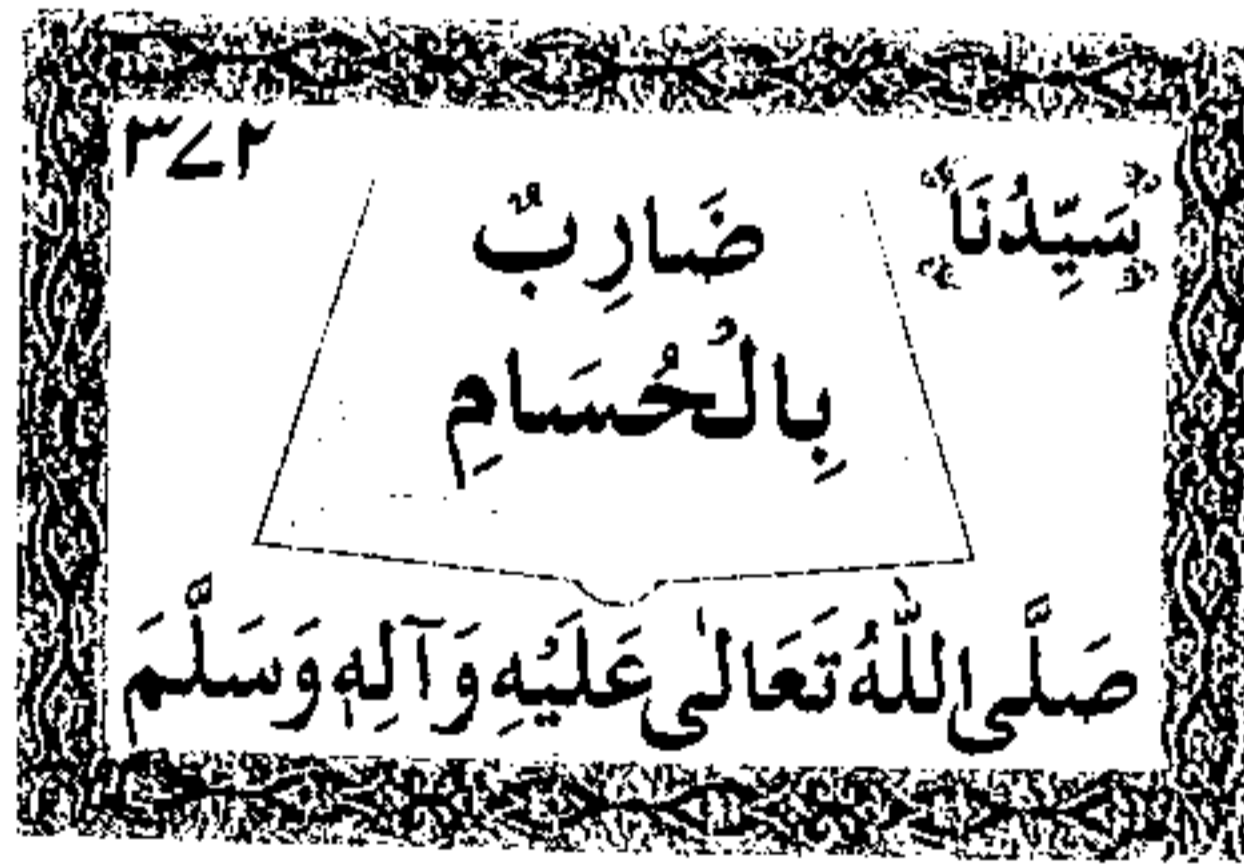 ۳۷۲
سَيِّدُنَا
ضَارِبٌ
بِالْحُسَامِ
صَلَّى اللّٰهُ تَعَالٰى عَلَيْهِ وَآلِهٖ وَسَلَّمَ